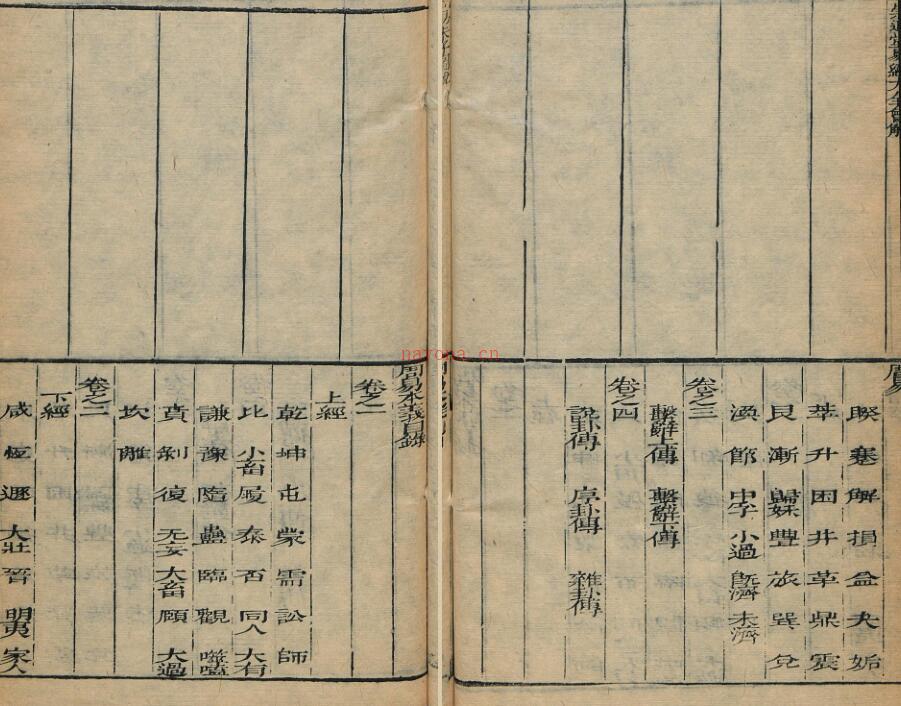 周易本義目錄
卷之一
上經
乾 坤 屯 蒙 需 訟 師
比 小畜 履 泰 否 同人 大有
謙 豫 隨 蠱 臨 觀 噬嗑
賁 剝 復 无妄 大畜 頤 大過
坎 離
卷之二
下經
咸 恆 遯 大壯 晉 明夷 家人
易經大全會解
周易
睽 蹇 解 損 益 夬 姤
萃 升 困 井 革 鼎 震
艮 漸 歸妹 豐 旅 巽 兌
渙 節 中孚 小過 既濟 未濟
卷之三
繫辭上傳 繫辭下傳
卷之四
說卦傳 序卦傳 雜卦傳
nayona.cn